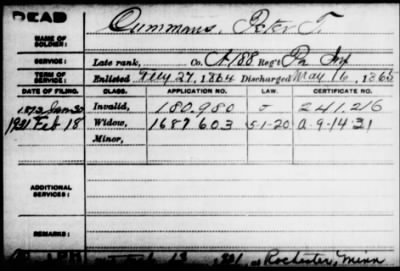 DEAD
NAME OF SOLDIER: Cummans, Peter T.
SERVICE: Late rank, Co. A 188 Reg't Pa Inf
TERM OF SERVICE: Enlisted July 27, 1864 Discharged May 16, 1865
DATE OF FILING. CLASS. APPLICATION NO. LAW. CERTIFICATE NO.
Invalid, 180,980 241,216
1931 Feb 18 Widow, 1687603 5-1-20 A-9-14-31
Minor,
ADDITIONAL SERVICES:
REMARKS:
Rochester, Minn